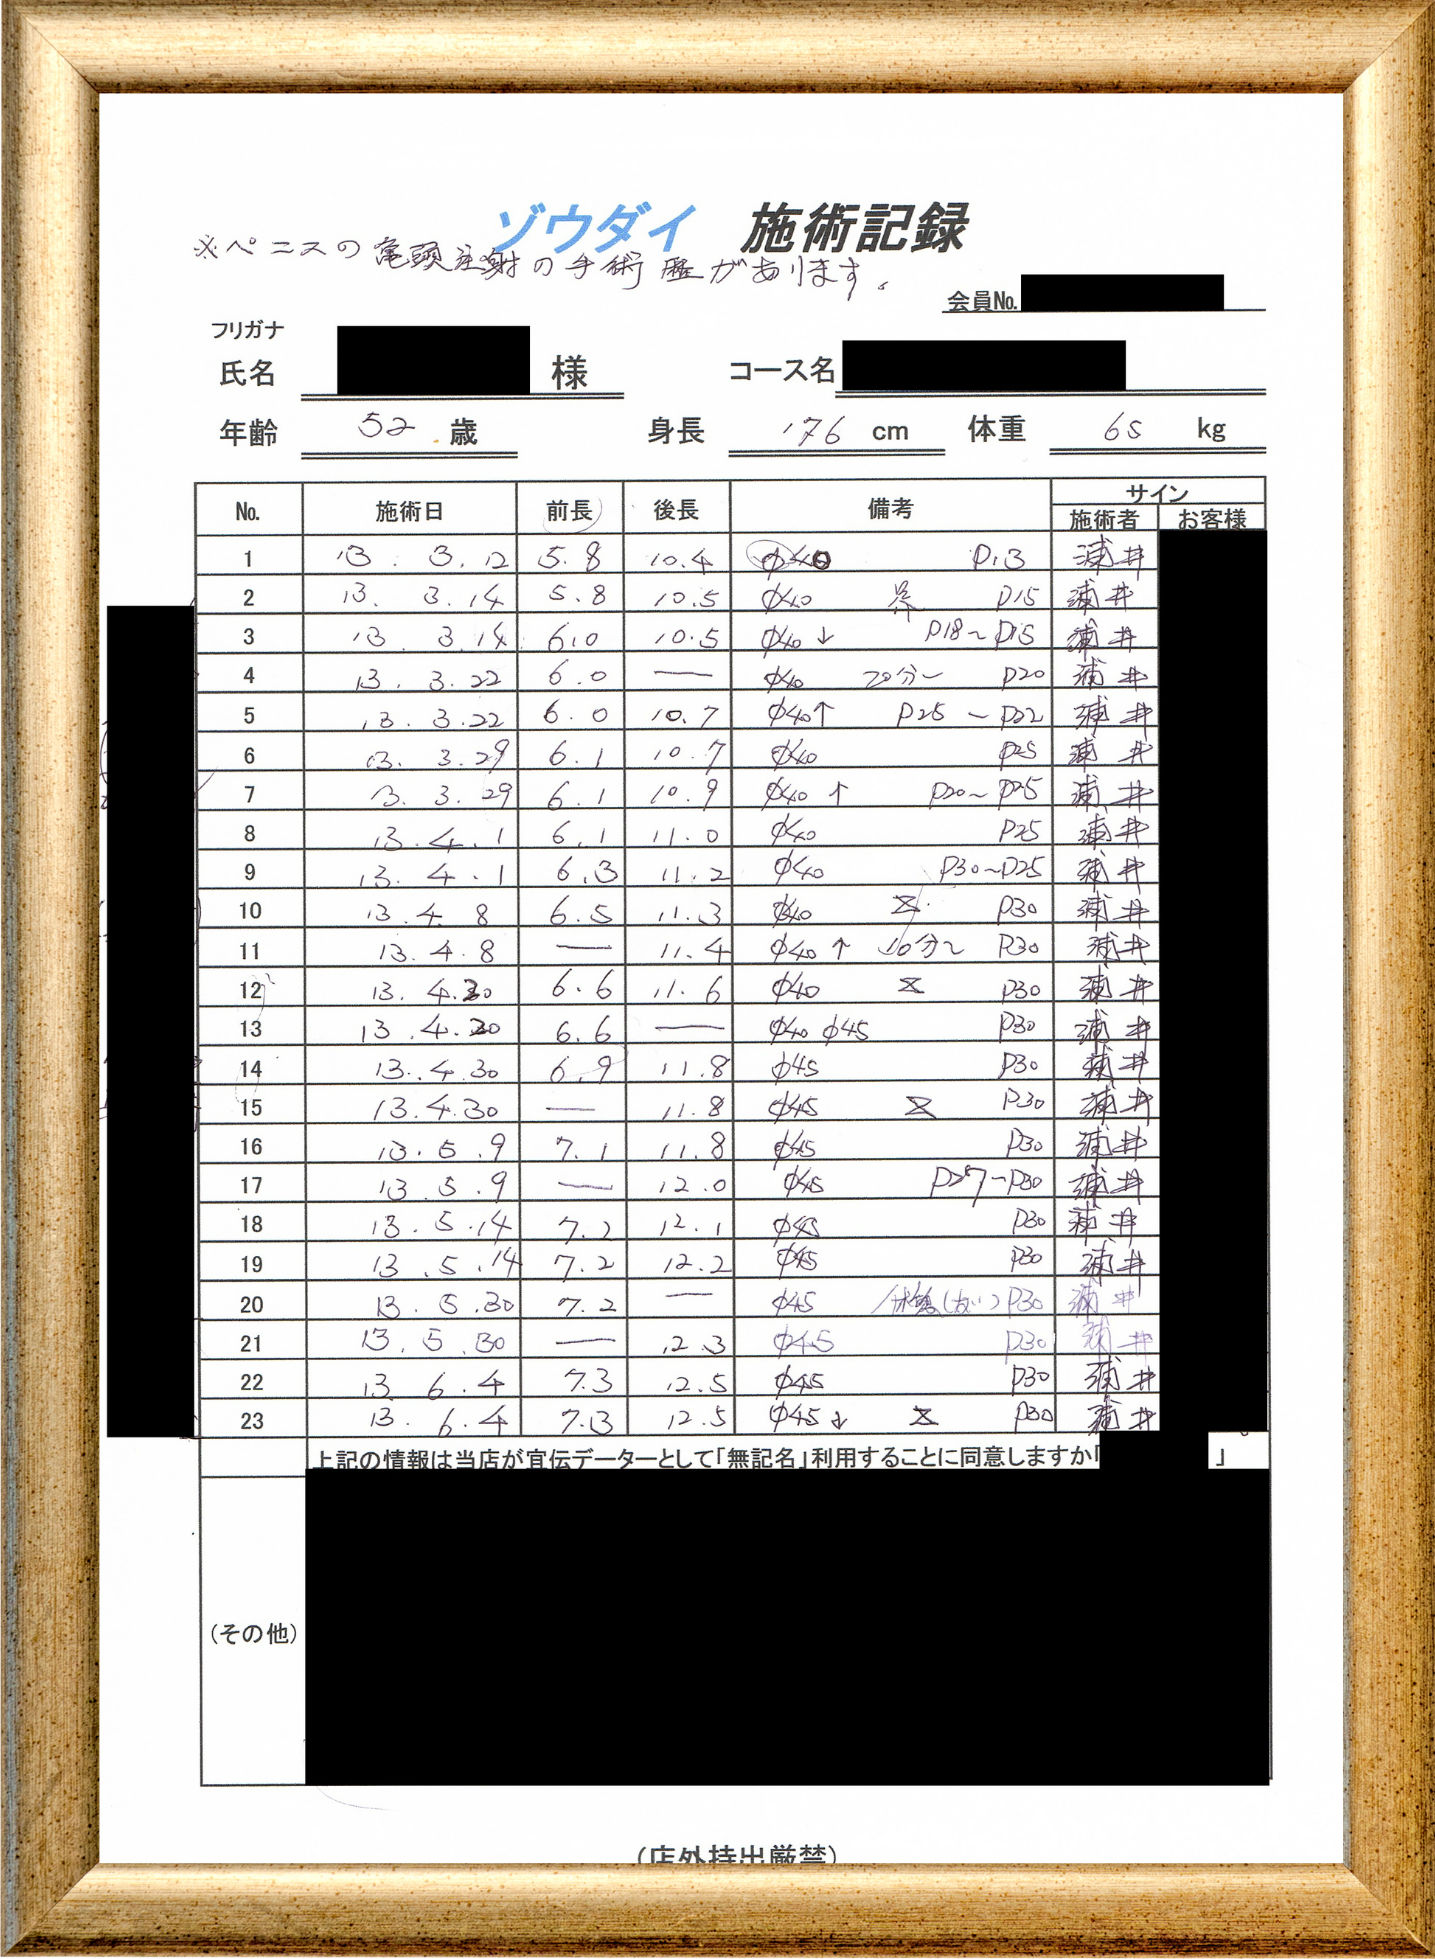 ゾウダイ 施術記録
※ペニスの亀頭注射の手術歴があります。
会員No.
フリガナ
氏名 様 コース名
年齢 52 歳 身長 176 cm 体重 65 kg
No. 施術日 前長 後長 備考 サイン
施術者 お客様
1 13. 3.12 5.8 10.4 φ40 P13 浦井
2 13. 3.14 5.8 10.5 φ40 P15 浦井
3 13 3.14 6.0 10.5 φ40↓ P18〜P15 浦井
4 13. 3.22 6.0 — φ40 20分〜 P20 浦井
5 13. 3.22 6.0 10.7 φ40↑ P25〜P22 浦井
6 13. 3.29 6.1 10.7 φ40 P25 浦井
7 13. 3.29 6.1 10.9 φ40↑ P20〜P25 浦井
8 13.4.1 6.1 11.0 φ40 P25 浦井
9 13.4.1 6.3 11.2 φ40 P30〜P25 浦井
10 13.4.8 6.5 11.3 φ40 P30 浦井
11 13.4.8 — 11.4 φ40↑ 10分〜 P30 浦井
12 13.4.30 6.6 11.6 φ40 P30 浦井
13 13.4.30 6.6 — φ40 φ45 P30 浦井
14 13.4.30 6.9 11.8 φ45 P30 浦井
15 13.4.30 — 11.8 φ45 P30 浦井
16 13.5.9 7.1 11.8 φ45 P30 浦井
17 13.5.9 — 12.0 φ45 P27〜P30 浦井
18 13.5.14 7.2 12.1 φ45 P30 浦井
19 13.5.14 7.2 12.2 φ45 P30 浦井
20 13.5.30 7.2 — φ45 P30 浦井
21 13.5.30 — 12.3 φ45 P30 浦井
22 13.6.4 7.3 12.5 φ45 P30 浦井
23 13.6.4 7.3 12.5 φ45↓ P30 浦井
上記の情報は当店が宣伝データーとして「無記名」利用することに同意しますか「 」
(その他)
(店外持出厳禁)